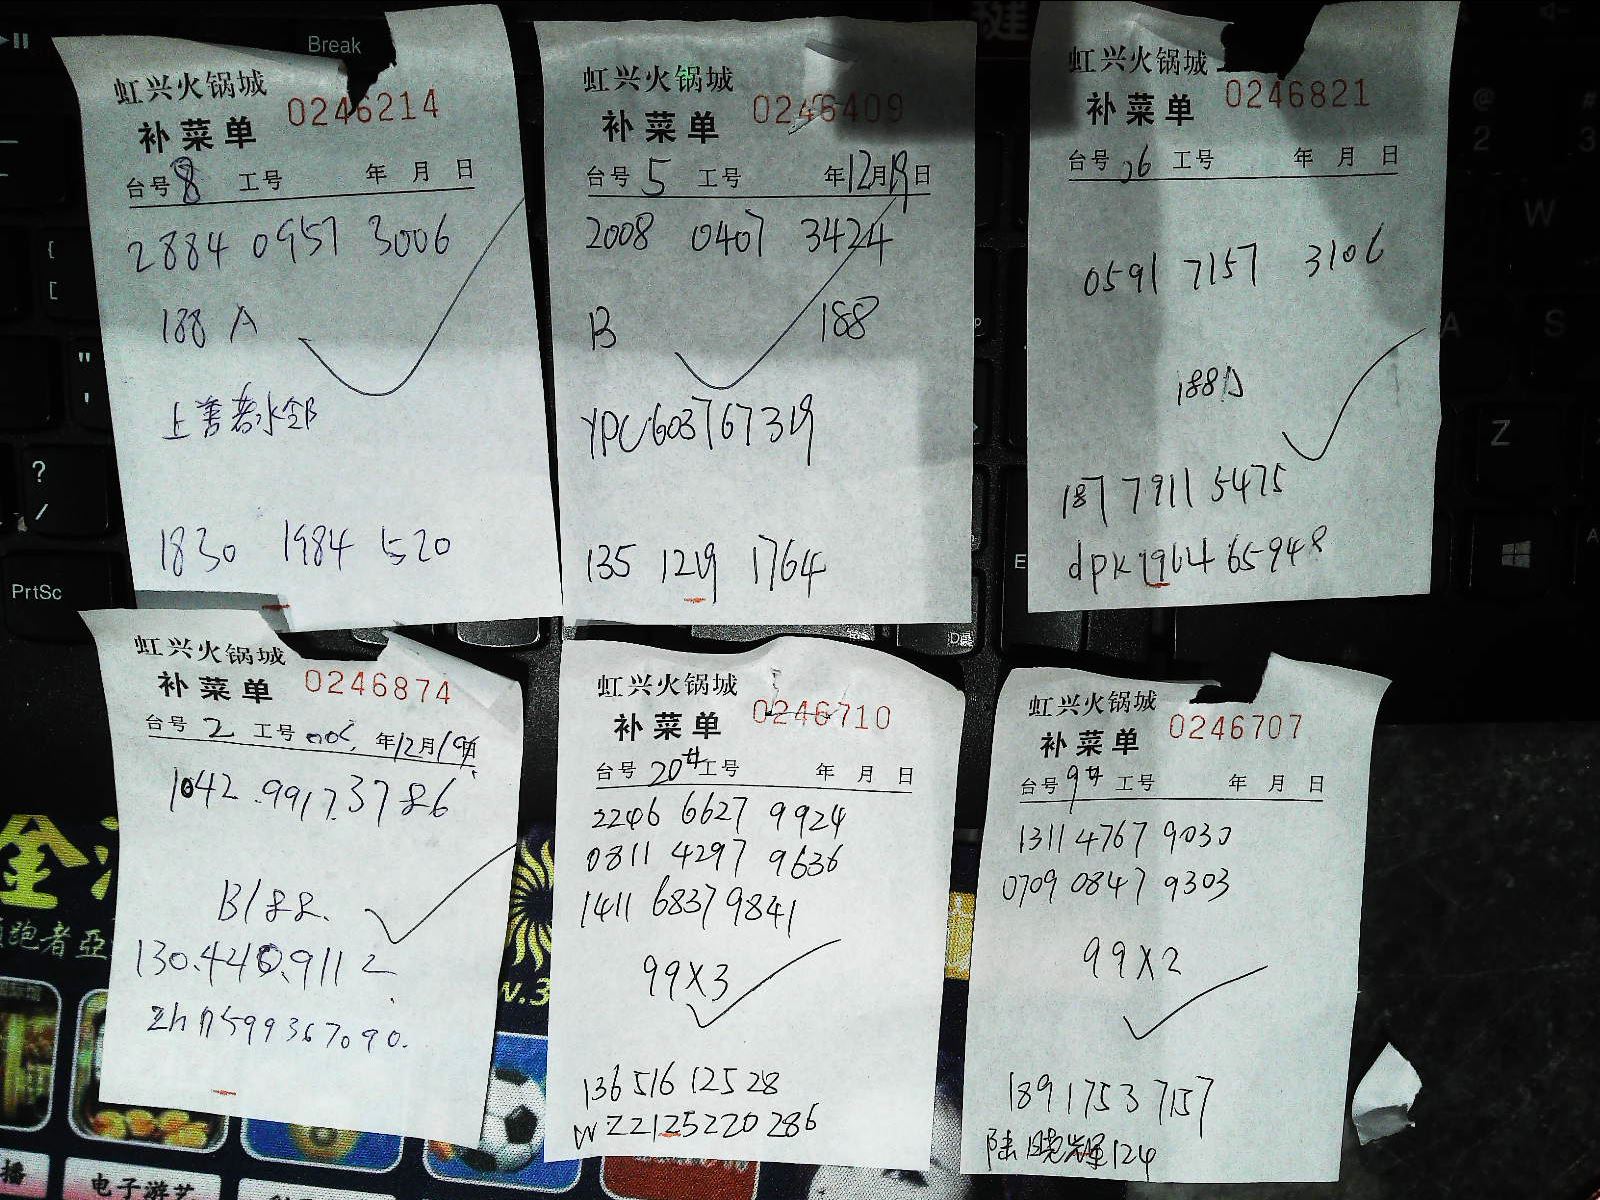 虹兴火锅城
补菜单 0246214
台号 8 工号 年 月 日
2884 0957 3006
188 A
上善若水邻
1830 1984 520
虹兴火锅城
补菜单 0246409
台号 5 工号 年12月19日
2008 0407 3424
B 188
YPC603767319
135 1219 1764
虹兴火锅城
补菜单 0246821
台号 06 工号 年 月 日
0591 7157 3106
188A
187 7911 5475
dpk1964 65948
虹兴火锅城
补菜单 0246874
台号 2 工号 006. 年12月19日
1042.9917.3786
B188.
130.4240.9112
zhn599367090.
虹兴火锅城
补菜单 0246710
台号 20# 工号 年 月 日
2246 6627 9924
0811 4297 9636
1411 6837 9841
99X3
136 516 125 28
WZ2125220286
虹兴火锅城
补菜单 0246707
台号 9# 工号 年 月 日
1311 4767 9030
0709 0847 9303
99X2
189 1753 7157
陆晓辉124
Break
PrtSc
金
跑者亞
电子游艺
播
N.3
@
2
#
3
W
A
S
Z
E
?
/